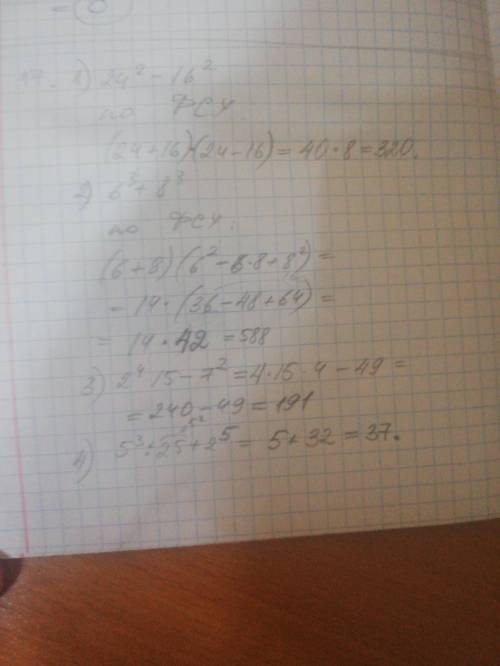 - 0
17. 1) 24² - 16²
по ФСУ.
(24+16)·(24-16) = 40·8 = 320.
2) 6³ + 8³
по ФСУ:
(6+8)(6² - 6·8 + 8²) =
- 14·(36 - 48 + 64) =
= 14·42 = 588
3) 2⁴·15 - 7² = 4·15·4 - 49 =
= 240 - 49 = 191
4) 5³ : 25 + 2⁵ = 5 + 32 = 37.